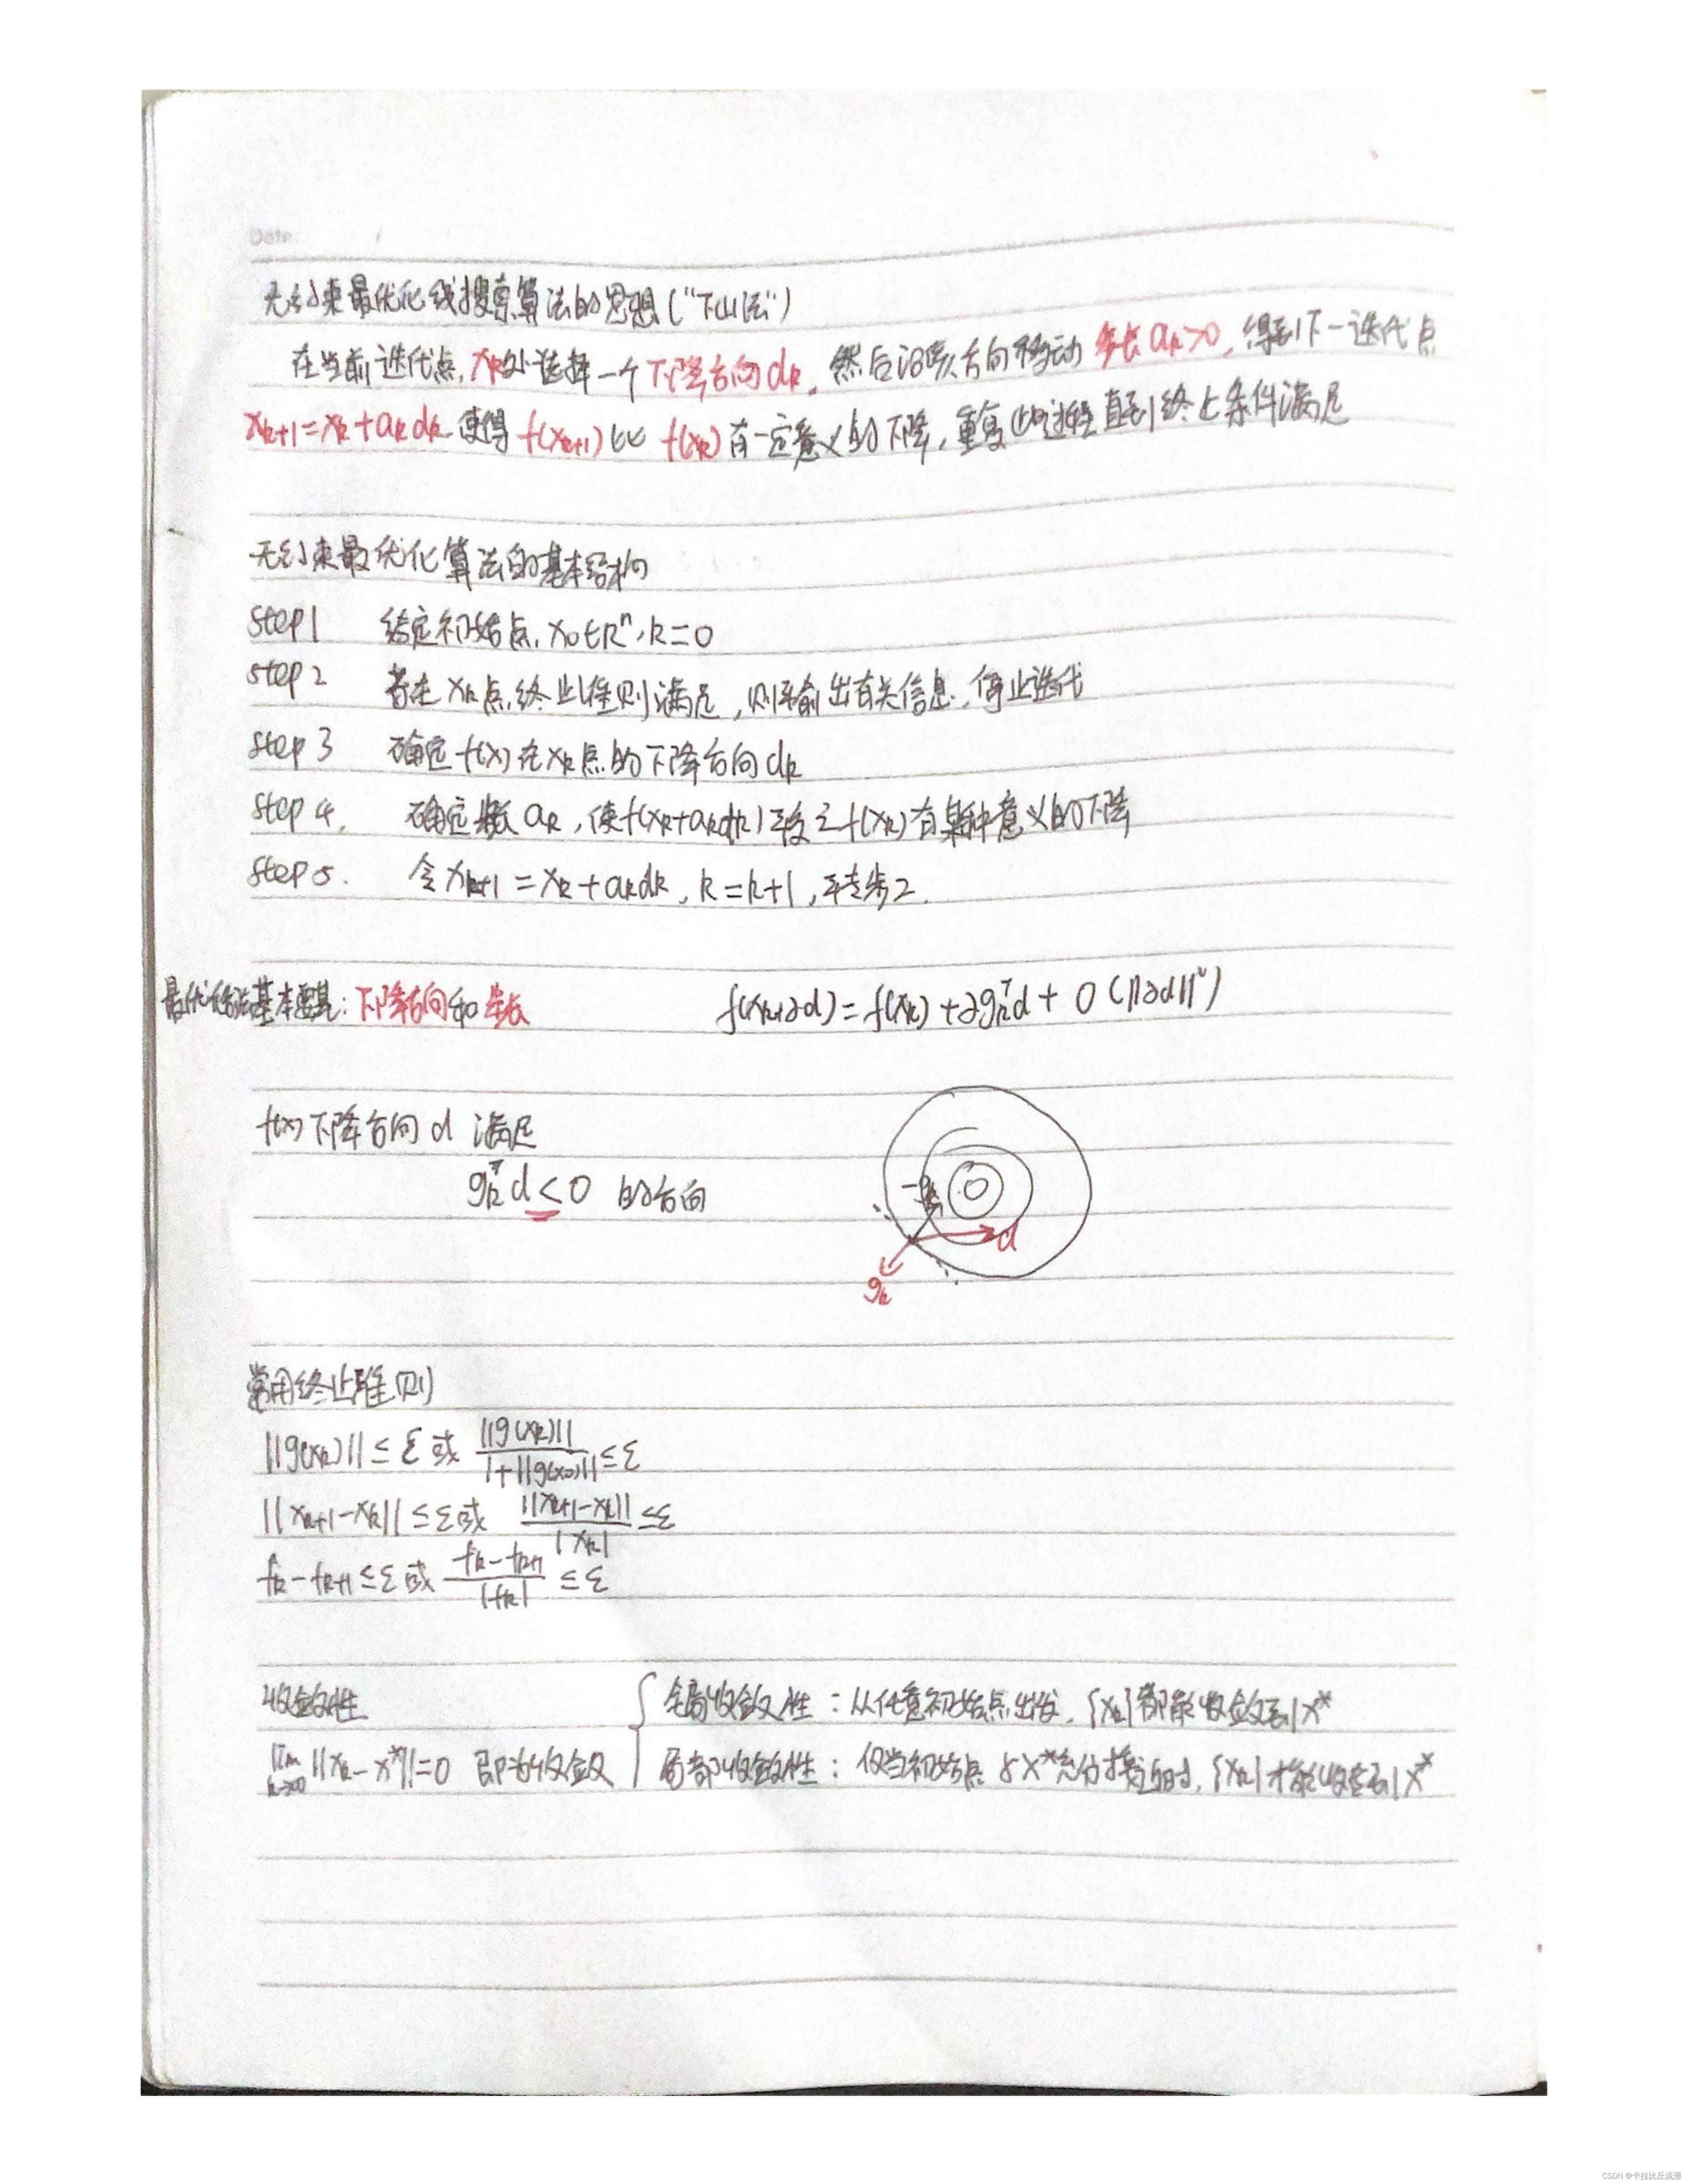 Date: /
无约束最优化线搜索算法的思想("下山法")
在当前迭代点,xk处选择一个下降方向dk,然后沿该方向移动步长ak>0,得到下一迭代点
xk+1=xk+akdk 使得 f(xk+1)比 f(xk)有一定意义的下降,重复此过程直到终止条件满足
无约束最优化算法的基本结构
Step1 给定初始点,x0∈Rⁿ,k=0
Step2 若在xk点终止准则满足,则输出有关信息,停止迭代
Step3 确定f(x)在xk点的下降方向dk
Step4, 确定 ak,使f(xk+akdk)较之f(xk)有某种意义的下降
Step5. 令xk+1=xk+akdk,k=k+1,转步2.
最优化 基本要素:下降方向和步长
f(xk+∂d)=f(xk)+∂gkᵀd+O(||∂d||²)
f(x)下降方向d 满足
gkᵀd<0 的方向
-gk
d
gk
常用终止准则
||g(xk)||≤ε或 ||g(xk)||/(1+||g(x0)||)≤ε
||xk+1-xk||≤ε或 ||xk+1-xk||/|xk|≤ε
fk-fk+1≤ε或 (fk-fk+1)/|fk|≤ε
收敛性
lim k→∞ ||xk-x*||=0 即为收敛
全局收敛性:从任意初始点出发,{xk}都能收敛到x*
局部收敛性:仅当初始点与x*充分接近时,{xk}才能收敛到x*
CSDN @卡拉比丘流形